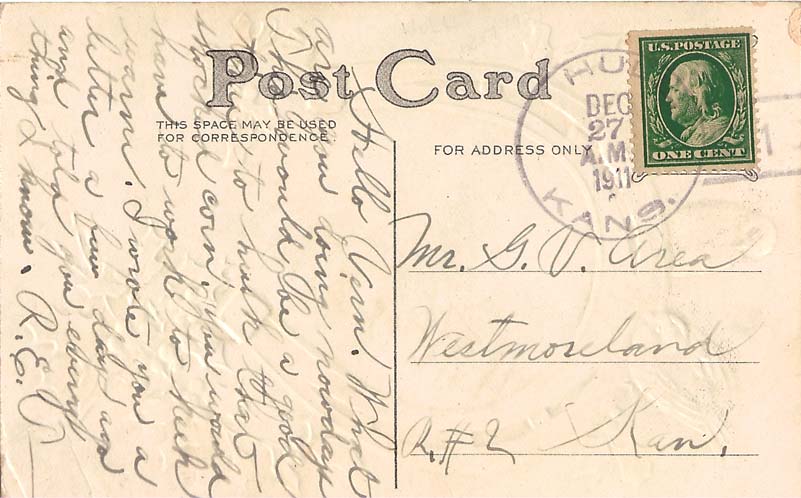 Post Card
THIS SPACE MAY BE USED
FOR CORRESPONDENCE
FOR ADDRESS ONLY
U.S. POSTAGE
ONE CENT
DEC
27
A.M.
1911
KANS.
1
Hello Vern. What
are you doing nowdays
This would be a good
to husk that
shocked corn. You would
have to work to
warm. I wrote you a
letter a few days ago
and told you every
thing I know. R.E.V
Mr. G. V. Area
Westmoreland
R.#2 Kan.